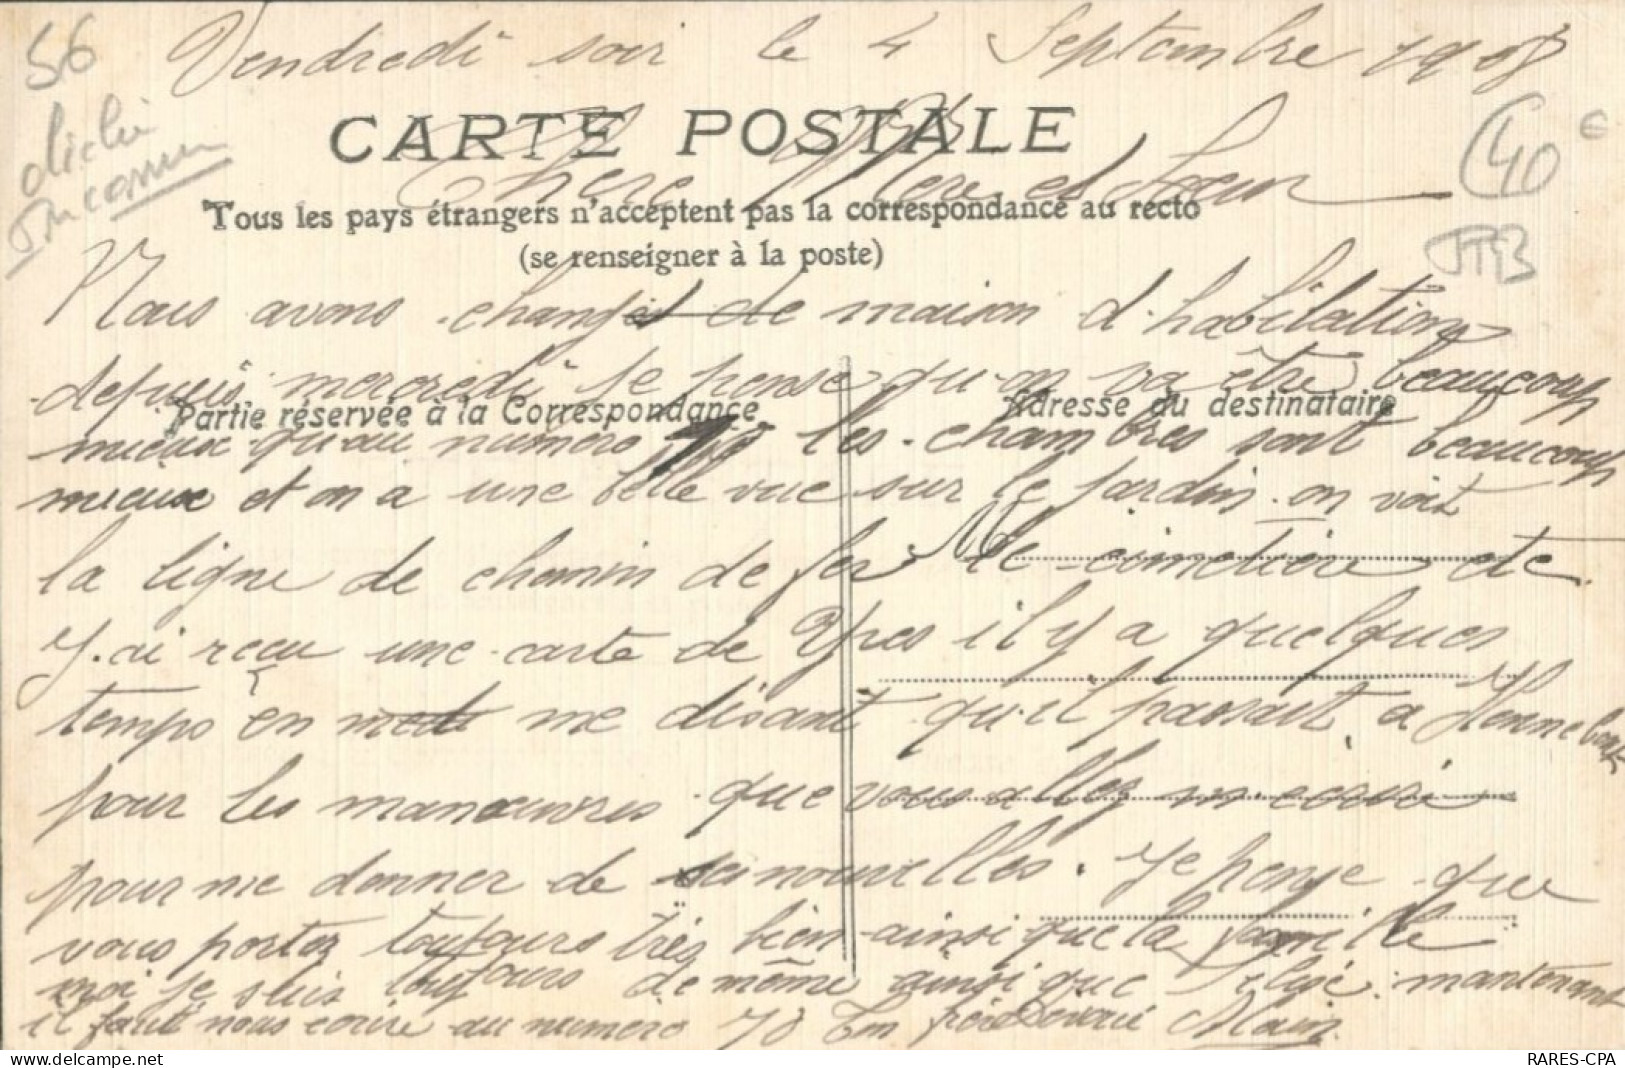 Vendredi soir le 4 Septembre 1908
56
cliché
inconnu
40 €
TTB
CARTE POSTALE
Chere Mere et Soeur
Tous les pays étrangers n'acceptent pas la correspondance au recto
(se renseigner à la poste)
Nous avons changé de maison d'habitation
depuis mercredi je pense qu'on va être beaucoup
Partie réservée à la Correspondance
Adresse du destinataire
mieux qu'au numero les chambres sont beaucoup
mieux et on a une belle vue sur le jardin on voit
la ligne de chemin de fer le cimetière etc
J'ai reçu une carte de Yves il y a quelques
temps en me disant qu'il passait a Hennebont
pour les manœuvres que vous allez m'ecrire
pour me donner de ses nouvelles. Je pense que
vous portez toujours très bien ainsi que la famille
moi je suis toujours de même ainsi que mantenant
il faut nous ecrire au numero 70 Ton frère Alain
RARES-CPA